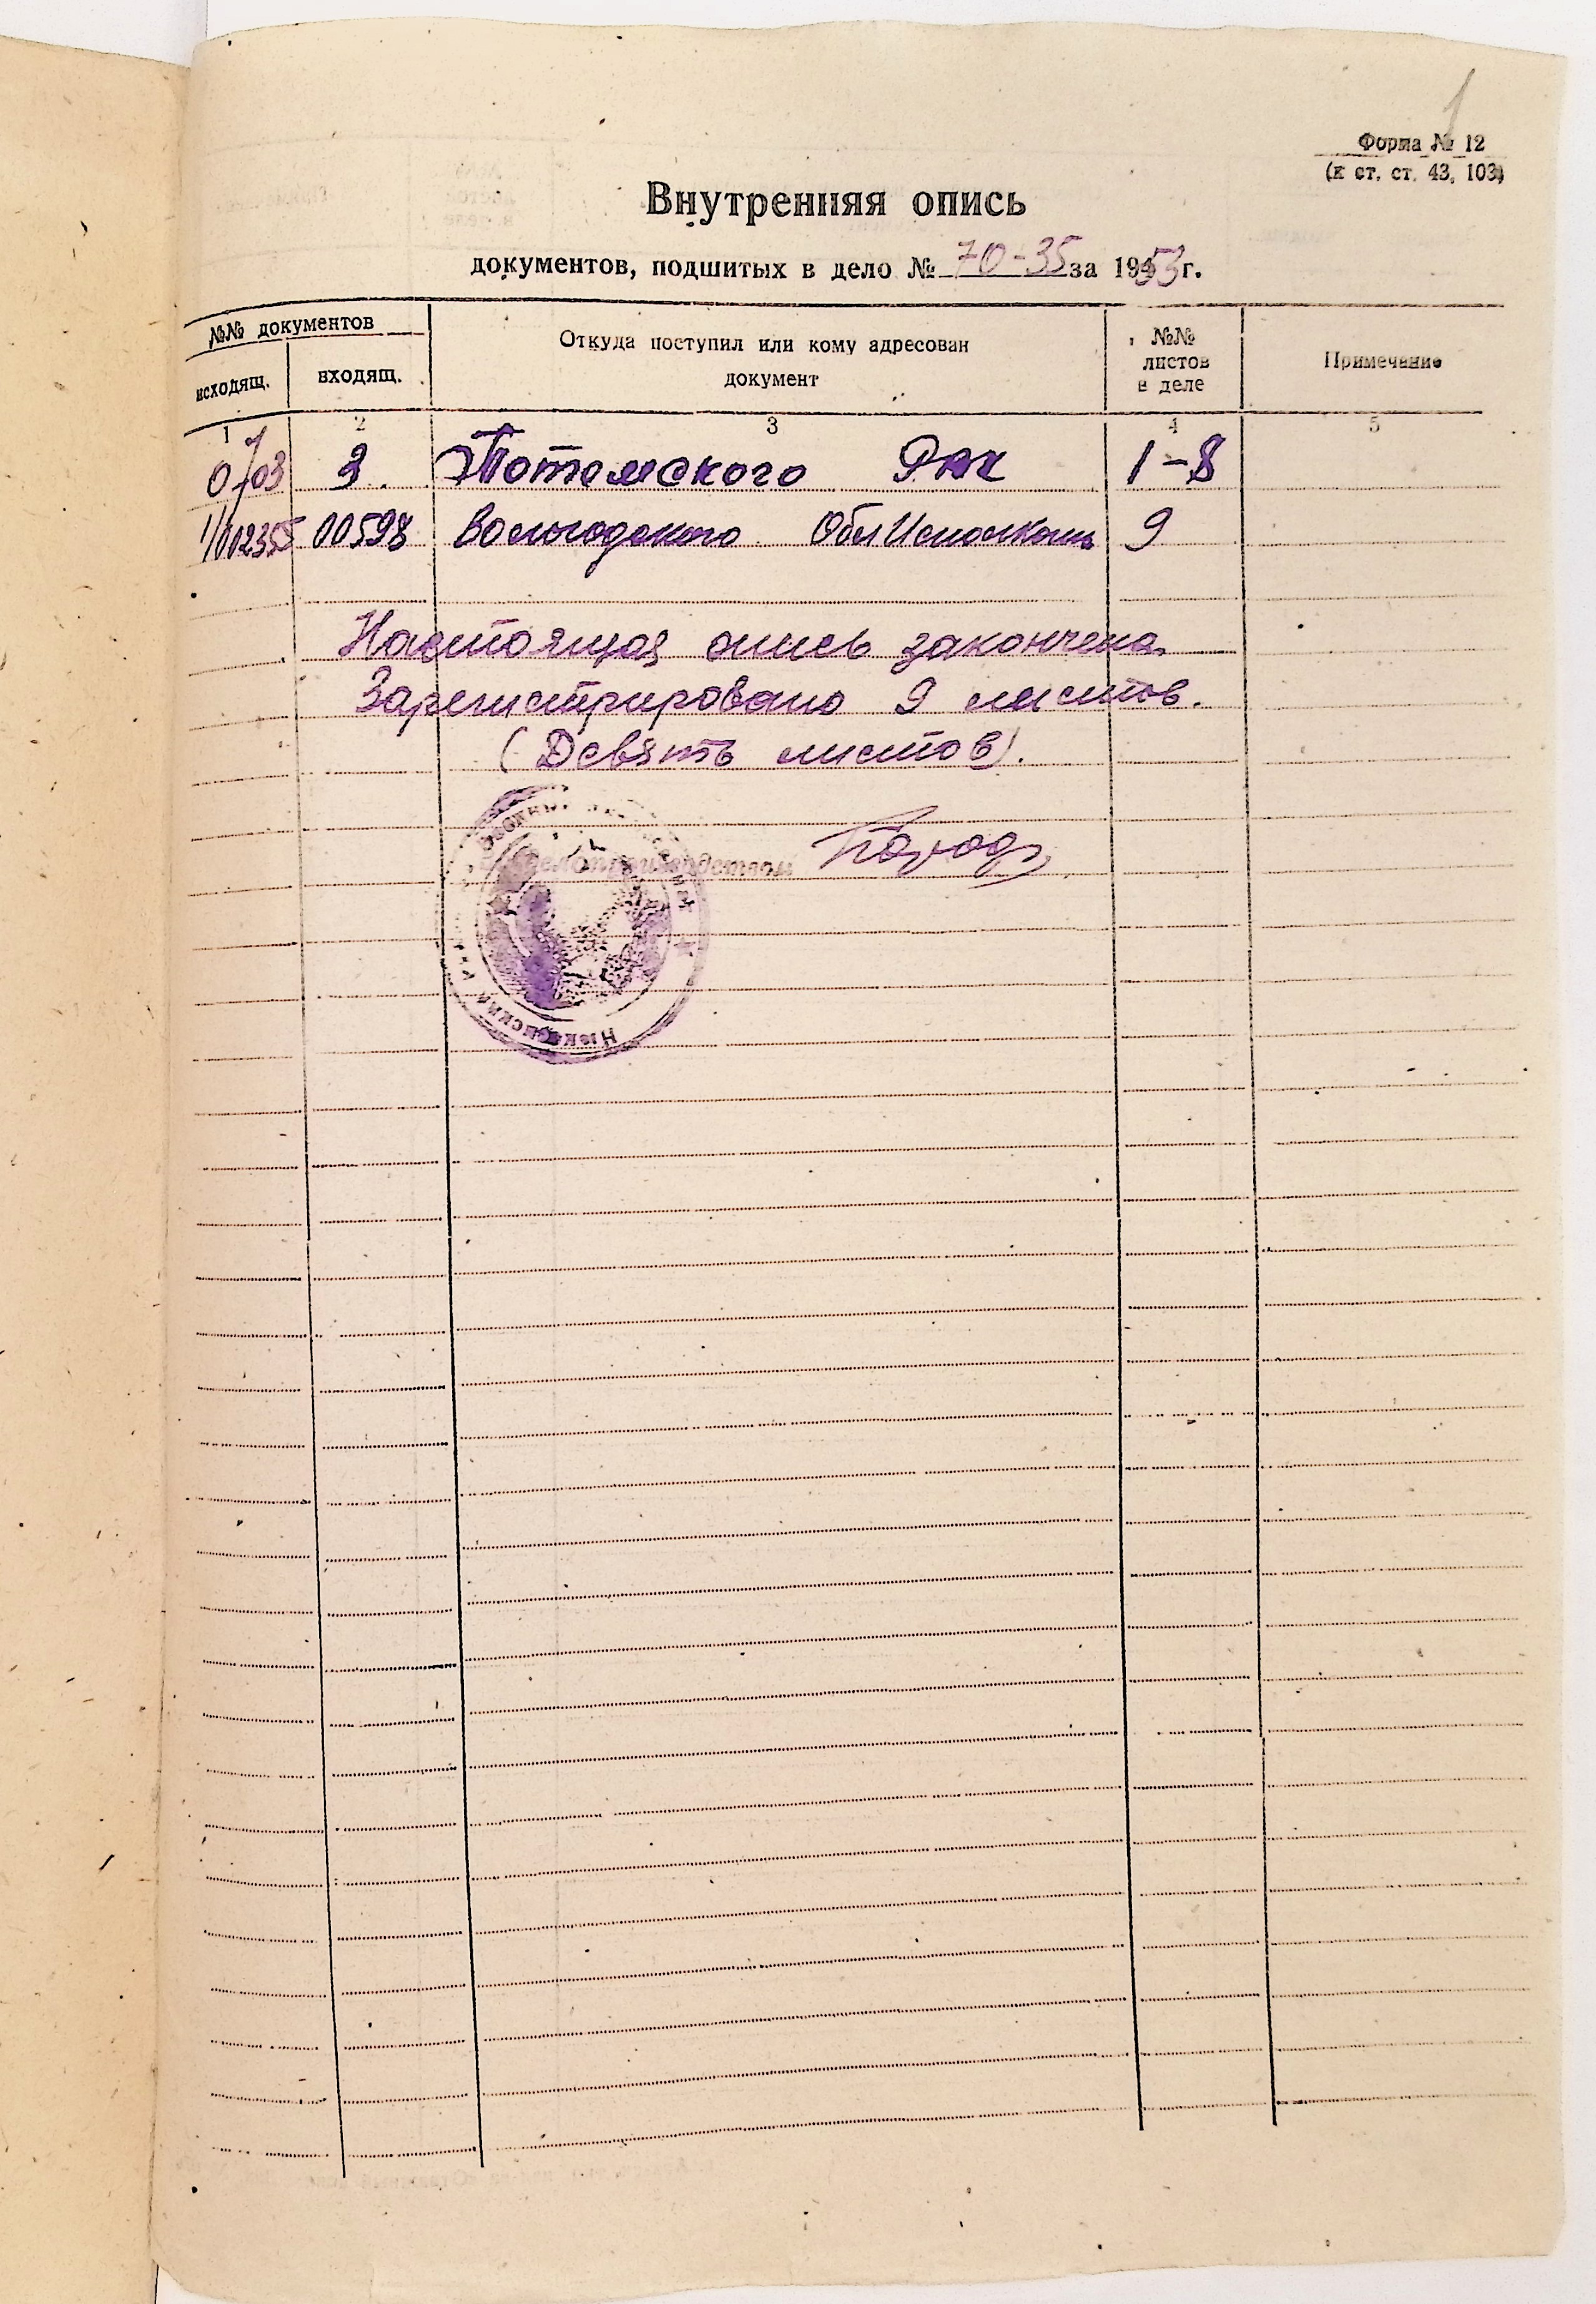 1
Форма № 12
(к ст. ст. 43, 103)
Внутренняя опись
документов, подшитых в дело № 70-35 за 1953 г.
№№ документов
исходящ.
входящ.
Откуда поступил или кому адресован
документ
№№
листов
в деле
Примечание
1 2 3 4 5
3. Тотемского РИК 1-8
00598 Вологодского ОблИсполкома 9
Настоящая опись закончена.
Зарегистрировано 9 листов.
(Девять листов).
делопроизводством
Нюксенский